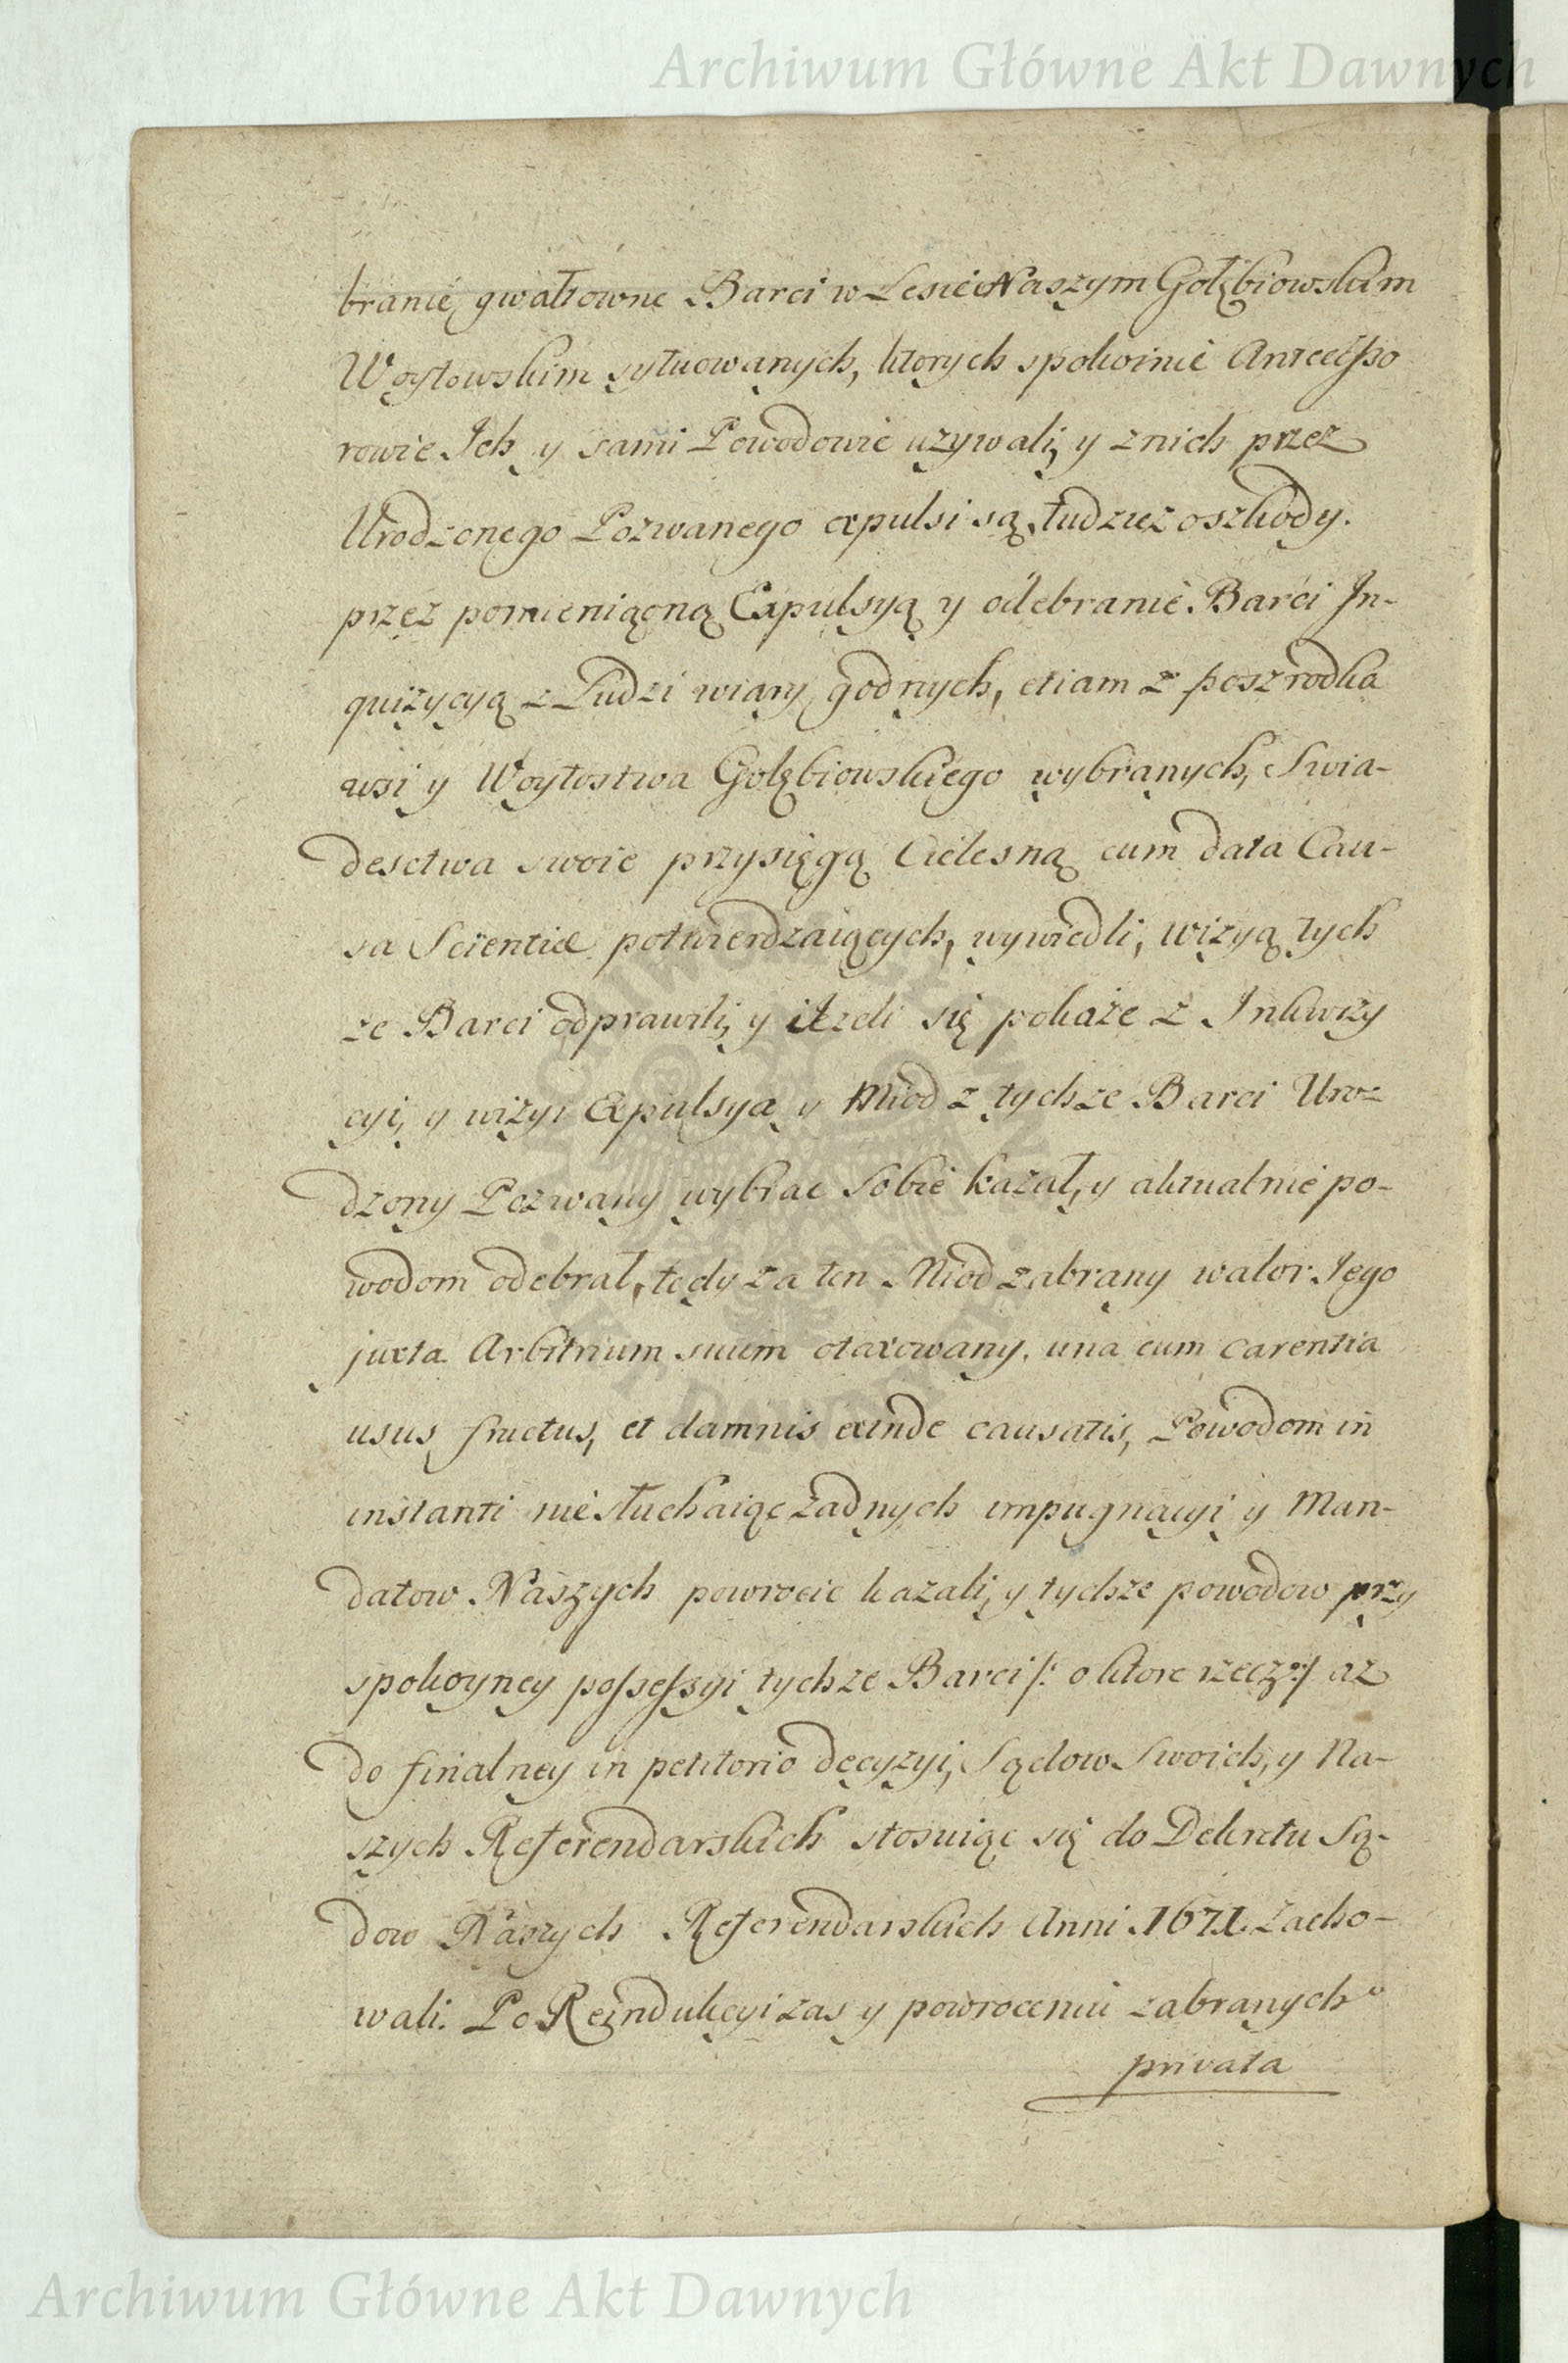 Archiwum Główne Akt Dawnych
branie gwałtowne Barci w Lesie Naszym Gołębiowskim
Woytowskim sytuowanych, ktorych spokoinie Antecesso
rowie Ich y sami Powodowie uzywali, y z nich przez
Urodzonego Pozwanego expulsi są, tudziez o szkody.
przez pomienioną Expulsyą y odebranie Barci In-
quizycyą z Ludzi wiary godnych, etiam z poszrodka
wsi y Woytostwa Gołębiowskiego wybranych, Swia-
desctwa swoie przysięgą Cielesną cum data Cau-
sa Scientiæ potwierdzaiących, wywiedli, wizyą tych
ze Barci odprawili, y ieżeli się pokaże z Inkwizy
cyi, y wizyi Expulsya y Miod z tychze Barci Uro-
dzony Pozwany wybrac sobie kazał, y aktualnie po-
wodom odebrał, tedy za ten Miod zabrany walor Jego
juxta Arbitrium suum otaxowany, una cum carentia
usus fructus, et damnis exinde causatis, Powodom in
instanti nie słuchaiąc żadnych impugnacyi y Man-
datow Naszych powrocic kazali, y tychze powodow przy
spokoyney possessyi tychze Barci /: o ktore rzecz :/ az
do finalney in petitorio decyzyi, Sądow Swoich, y Na-
szych Referendarskich stosuiąc się do Dekretu Są-
dow Naszych Referendarskich Anni 1671. zacho-
wali. Po Reindukcyi zas y powroceniu zabranych
privata
Archiwum Główne Akt Dawnych